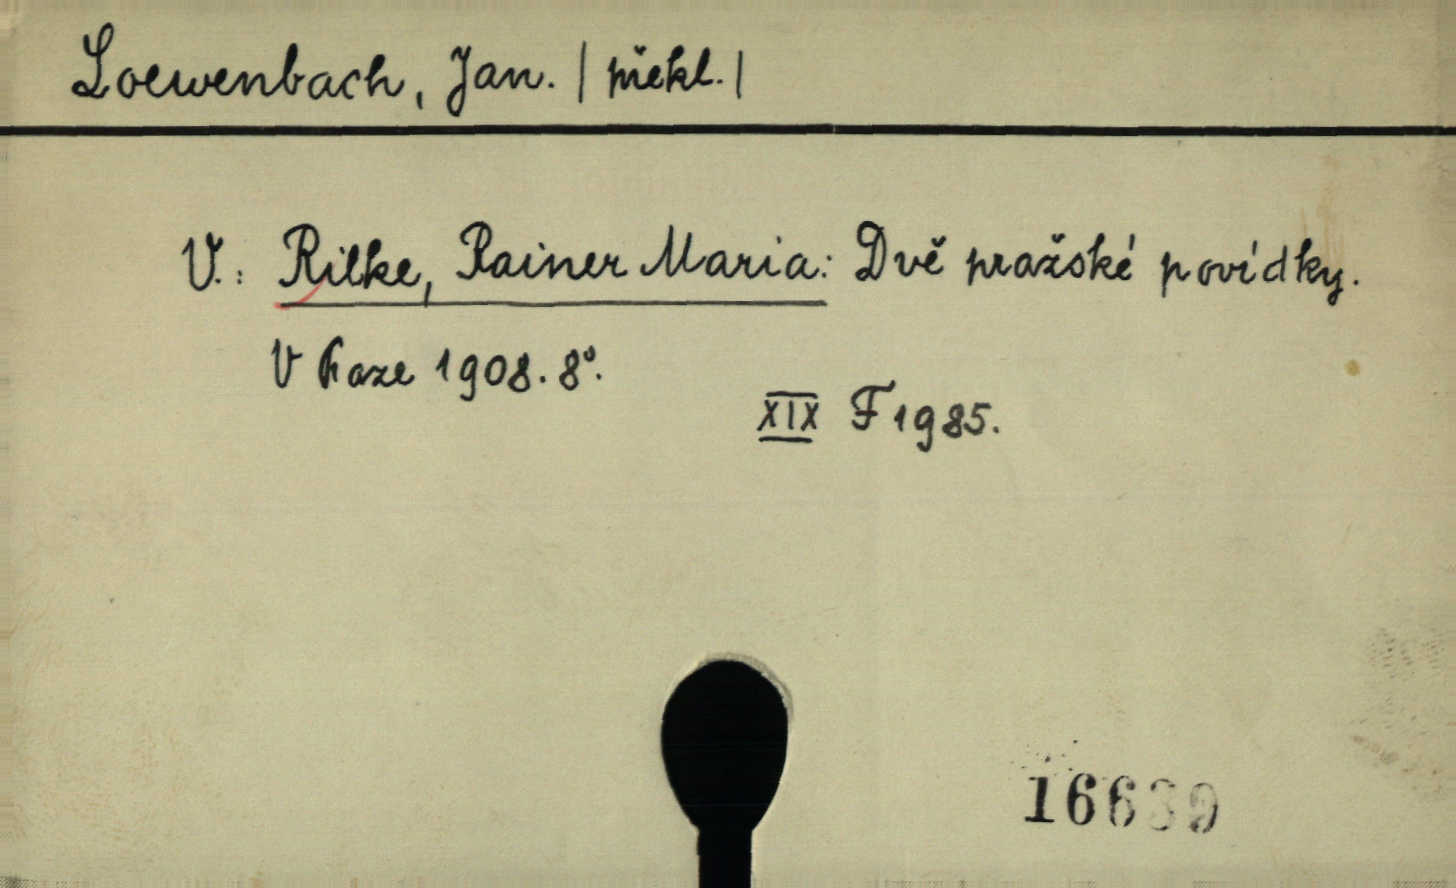 Loewenbach, Jan. | překl. |
V.: Rilke, Rainer Maria: Dvě pražské povídky.
V Praze 1908. 8°.
XIX F 1985.
16639